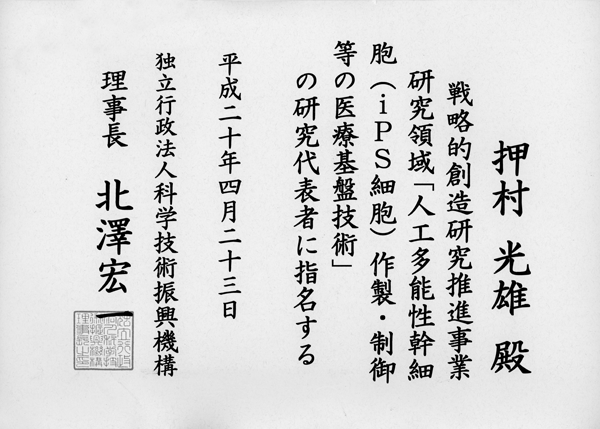 押村 光雄 殿
戦略的創造研究推進事業
研究領域「人工多能性幹細
胞(iPS細胞)作製・制御
等の医療基盤技術」
の研究代表者に指名する
平成二十年四月二十三日
独立行政法人科学技術振興機構
理事長 北澤宏一